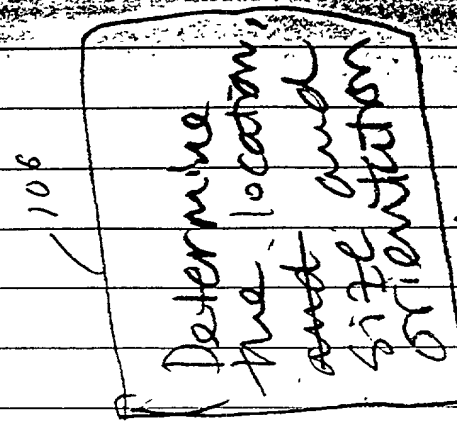 106
Determine
the location,
and
size and
orientation